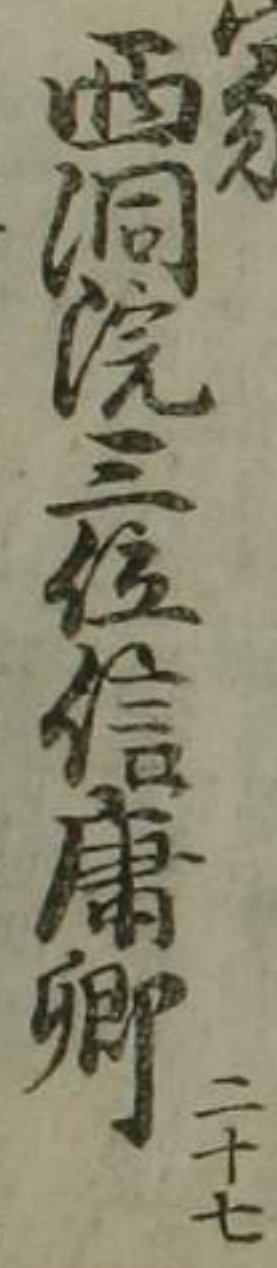 西洞院三位信庸卿
二十七